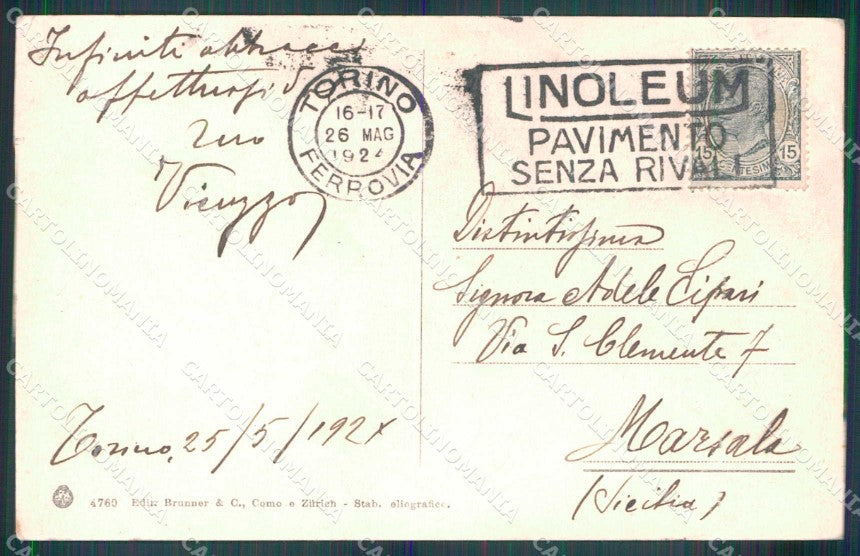 Infiniti abbracci
affettuosi d
tuo
Vicuzzo
Torino, 25/5/1924
4760 Ediz. Brunner & C., Como e Zürich - Stab. eliografico.
TORINO
16-17
26 MAG
1924
FERROVIA
LINOLEUM
PAVIMENTO
SENZA RIVALI
15 CENTESIMI 15
Distintissima
Signora Adele Sipari
Via S. Clemente 7
Marsala
(Sicilia)
CARTOLINOMANIA